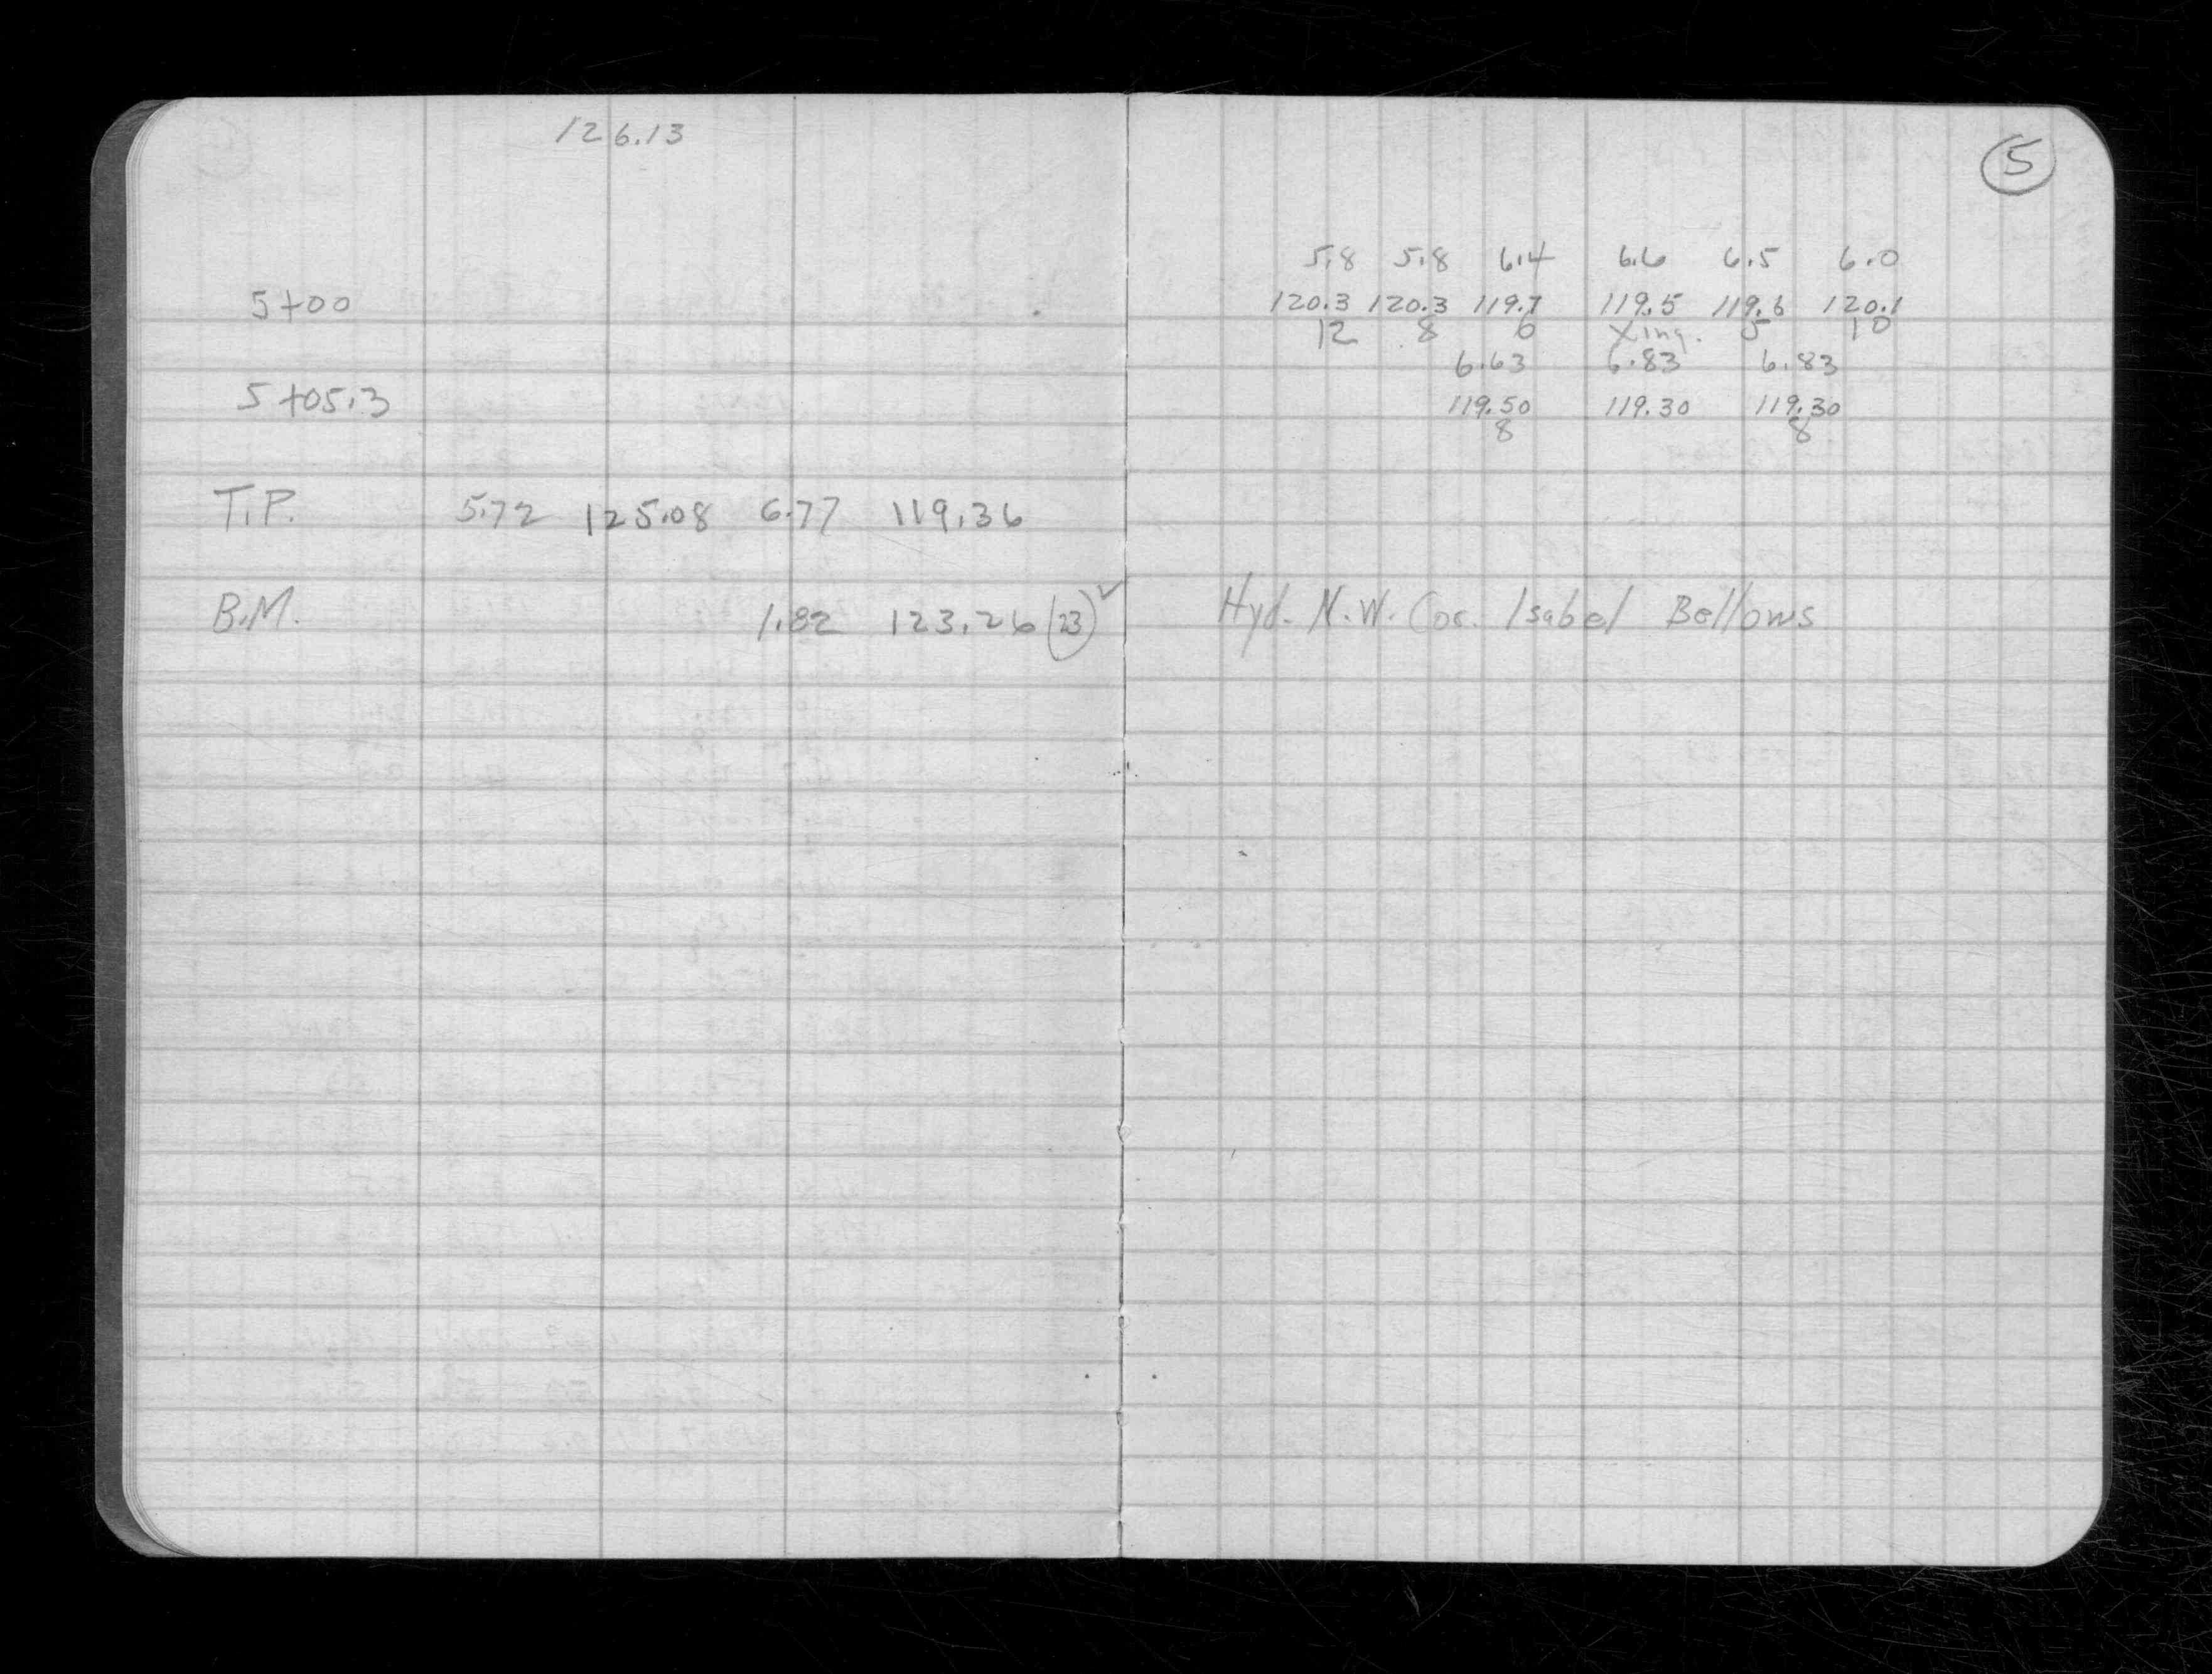 126.13
5+00
5+05.3
T.P. 5.72 125.08 6.77 119.36
B.M. 1.82 123.26 (23) ✓
5
5.8 5.8 6.4 6.6 6.5 6.0
120.3 120.3 119.7 119.5 119.6 120.1
12 8 6 Xing. 5 10
6.63 6.83 6.83
119.50 119.30 119.30
8 8
Hyd. N.W. Cor. Isabel Bellows